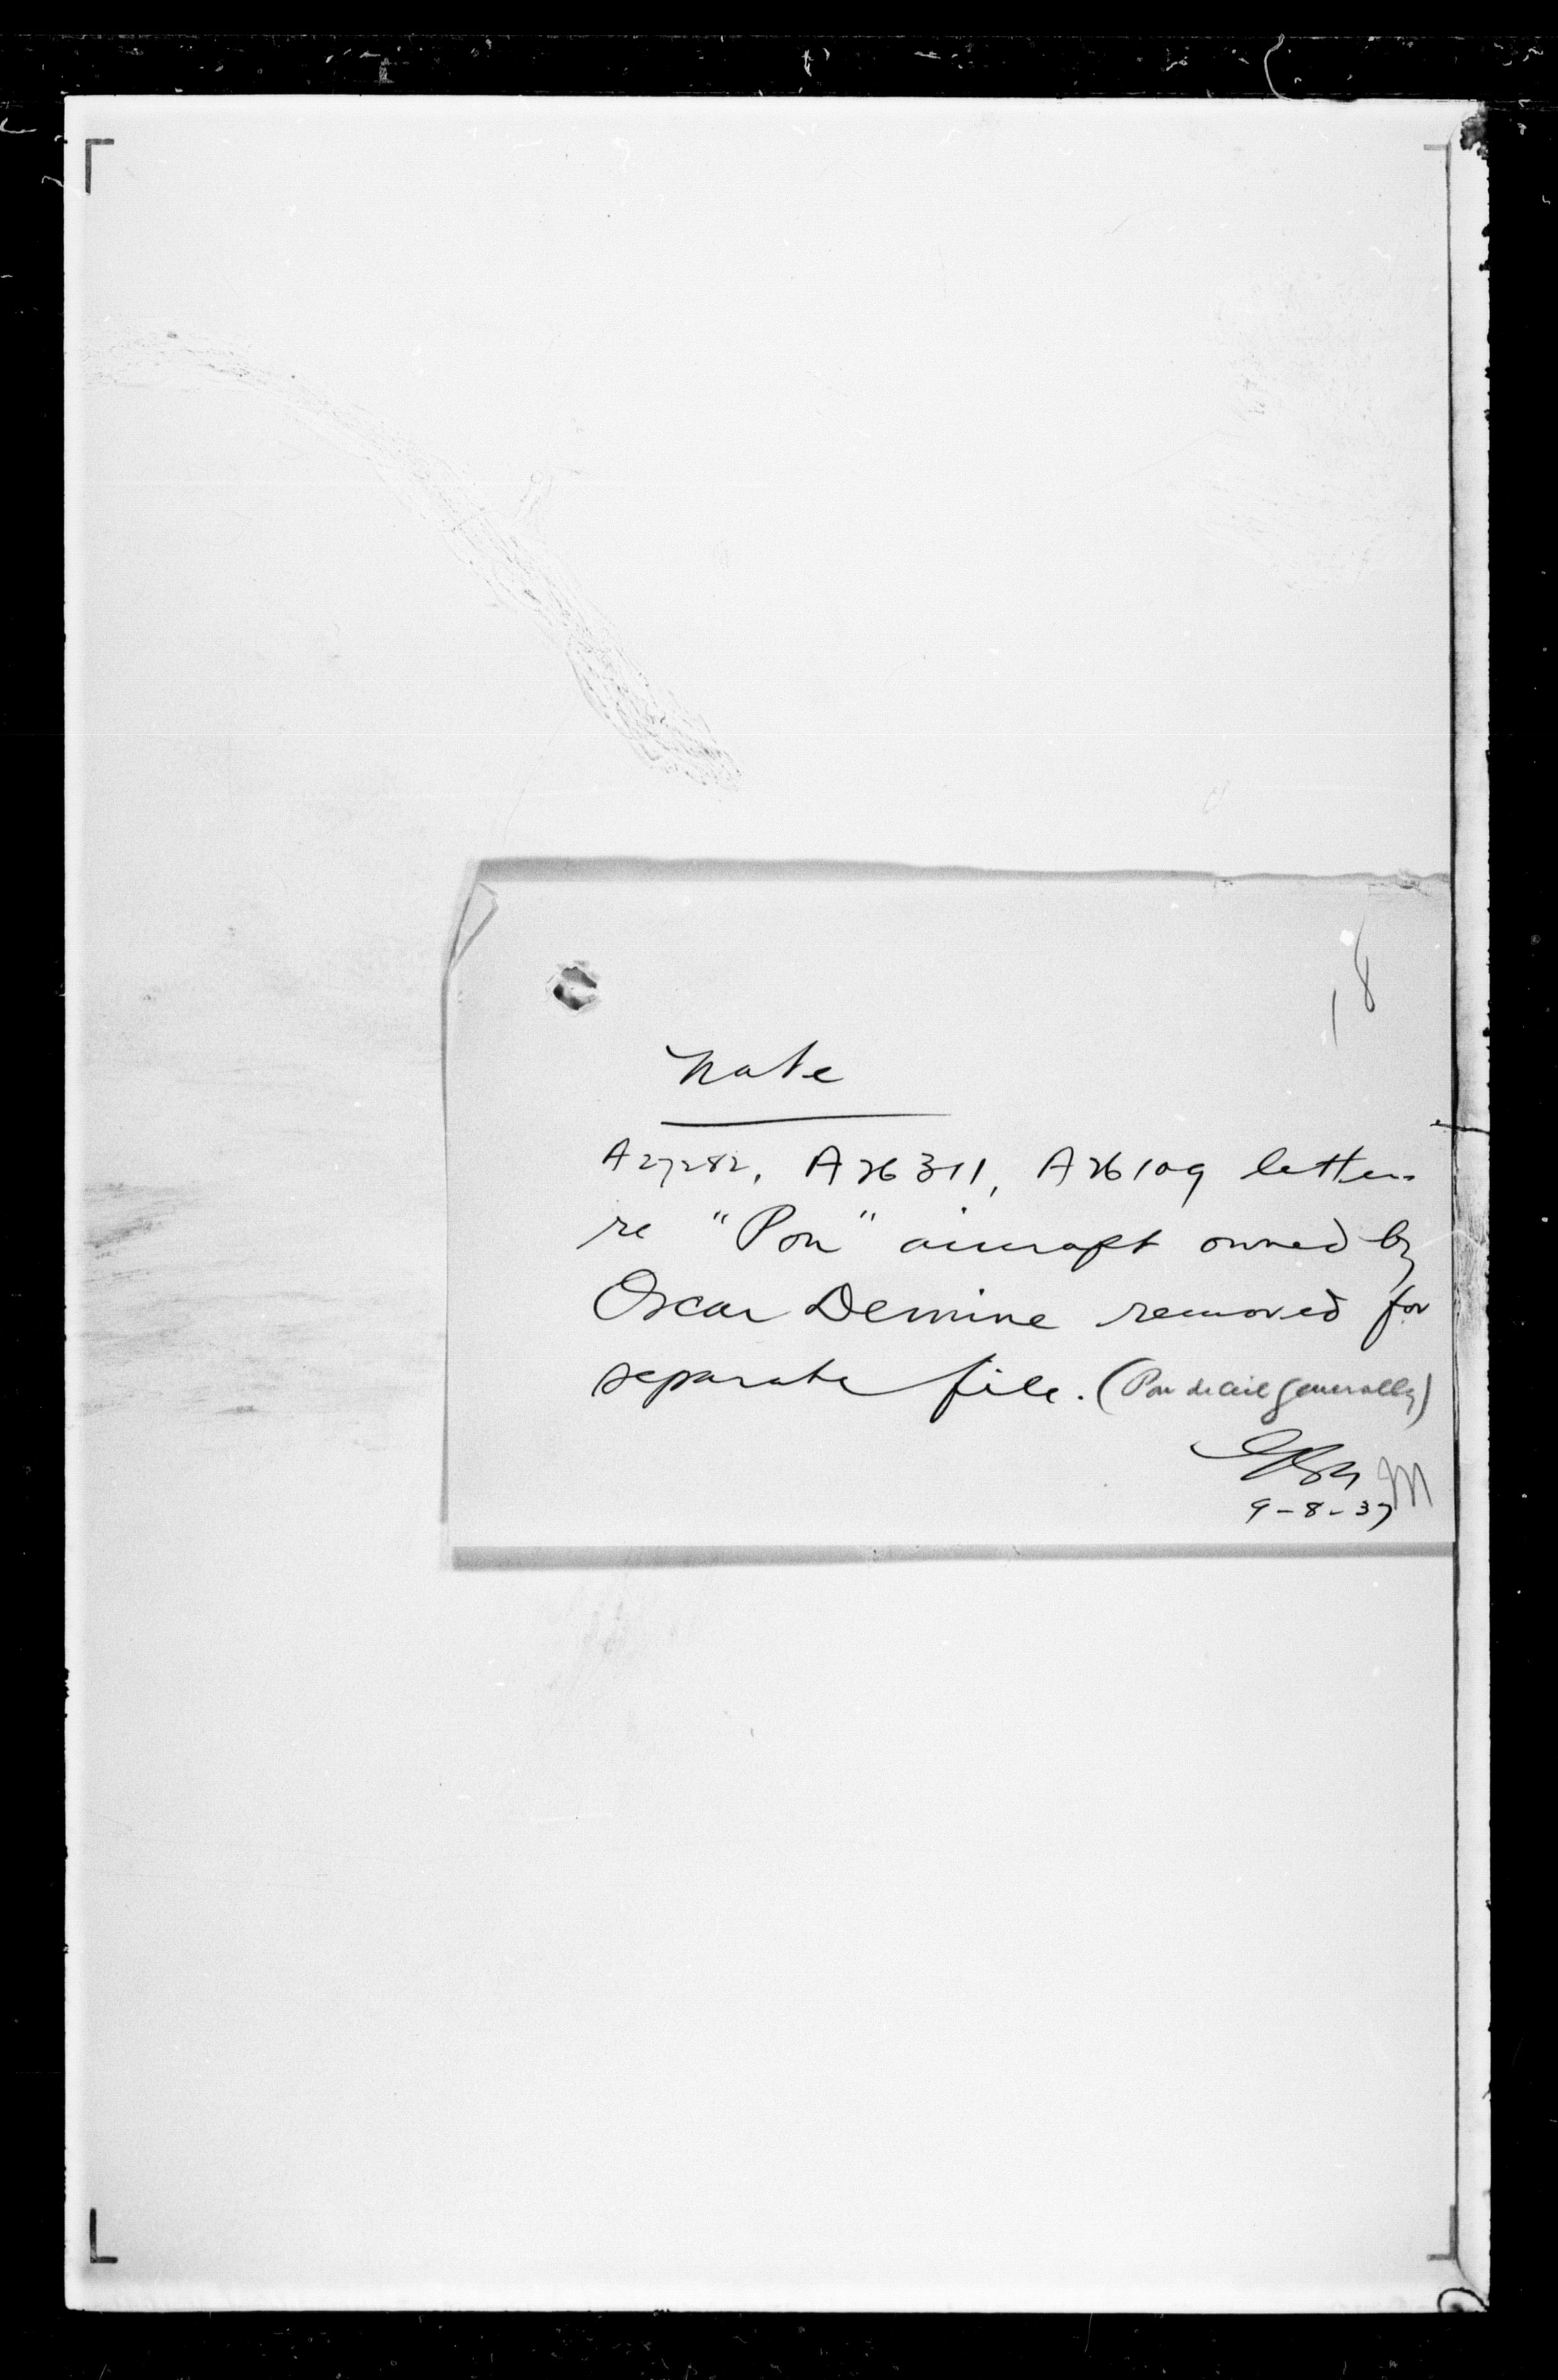 18
Note
A27282, A26311, A26109 letters
re "Pou" aircraft owned by
Oscar Demine removed for
separate file. (Pou du Ciel generally)
9-8-37